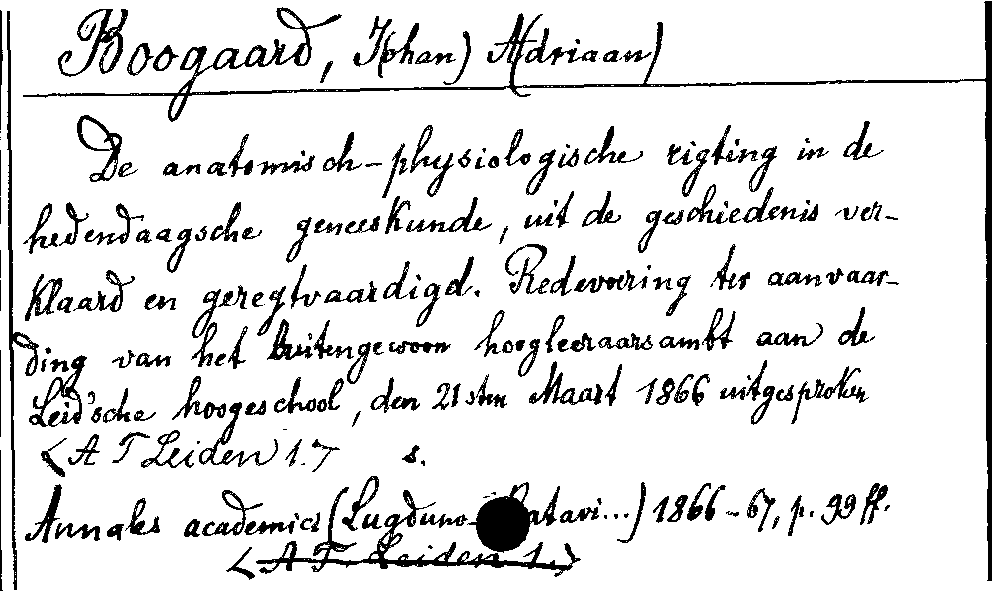 Boogaard, J(ohan) A(driaan)
De anatomisch-physiologische rigting in de
hedendaagsche geneeskunde, uit de geschiedenis ver-
klaard en geregtvaardigd. Redevoering ter aanvaar-
ding van het buitengewoon hoogleeraarsambt aan de
Leid'sche hoogeschool, den 21sten Maart 1866 uitgesproken
<A T Leiden 1.7 s.
Annales academici (Lugduno-Batavi...) 1866-67, p. 99 ff.
<A T. Leiden 1.>